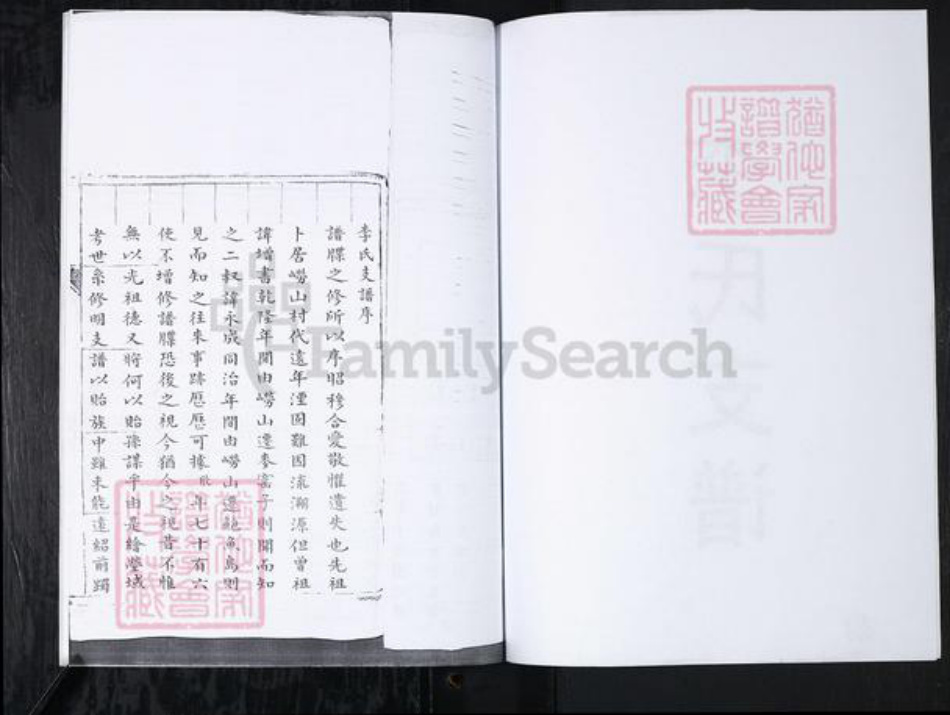 李氏支譜序
譜牒之修所以序昭穆合愛敬懼遺失也先祖
卜居嶗山村代遠年湮固難因流溯源但曾祖
諱增書乾隆年間由嶗山遷麥窰子則聞而知
之二叔諱永成同治年間由嶗山遷鮑魚島則
見而知之往來事跡歷歷可據 年七十有六
使不增修譜牒恐後之視今猶今之視昔不惟
無以光祖德又將何以貽孫謀乎由是繪塋域
考世系修明支譜以貽族中雖未能遠紹前躅
猶他家
譜學會
收藏
猶他家
譜學會
收藏
氏支譜
FamilySearch